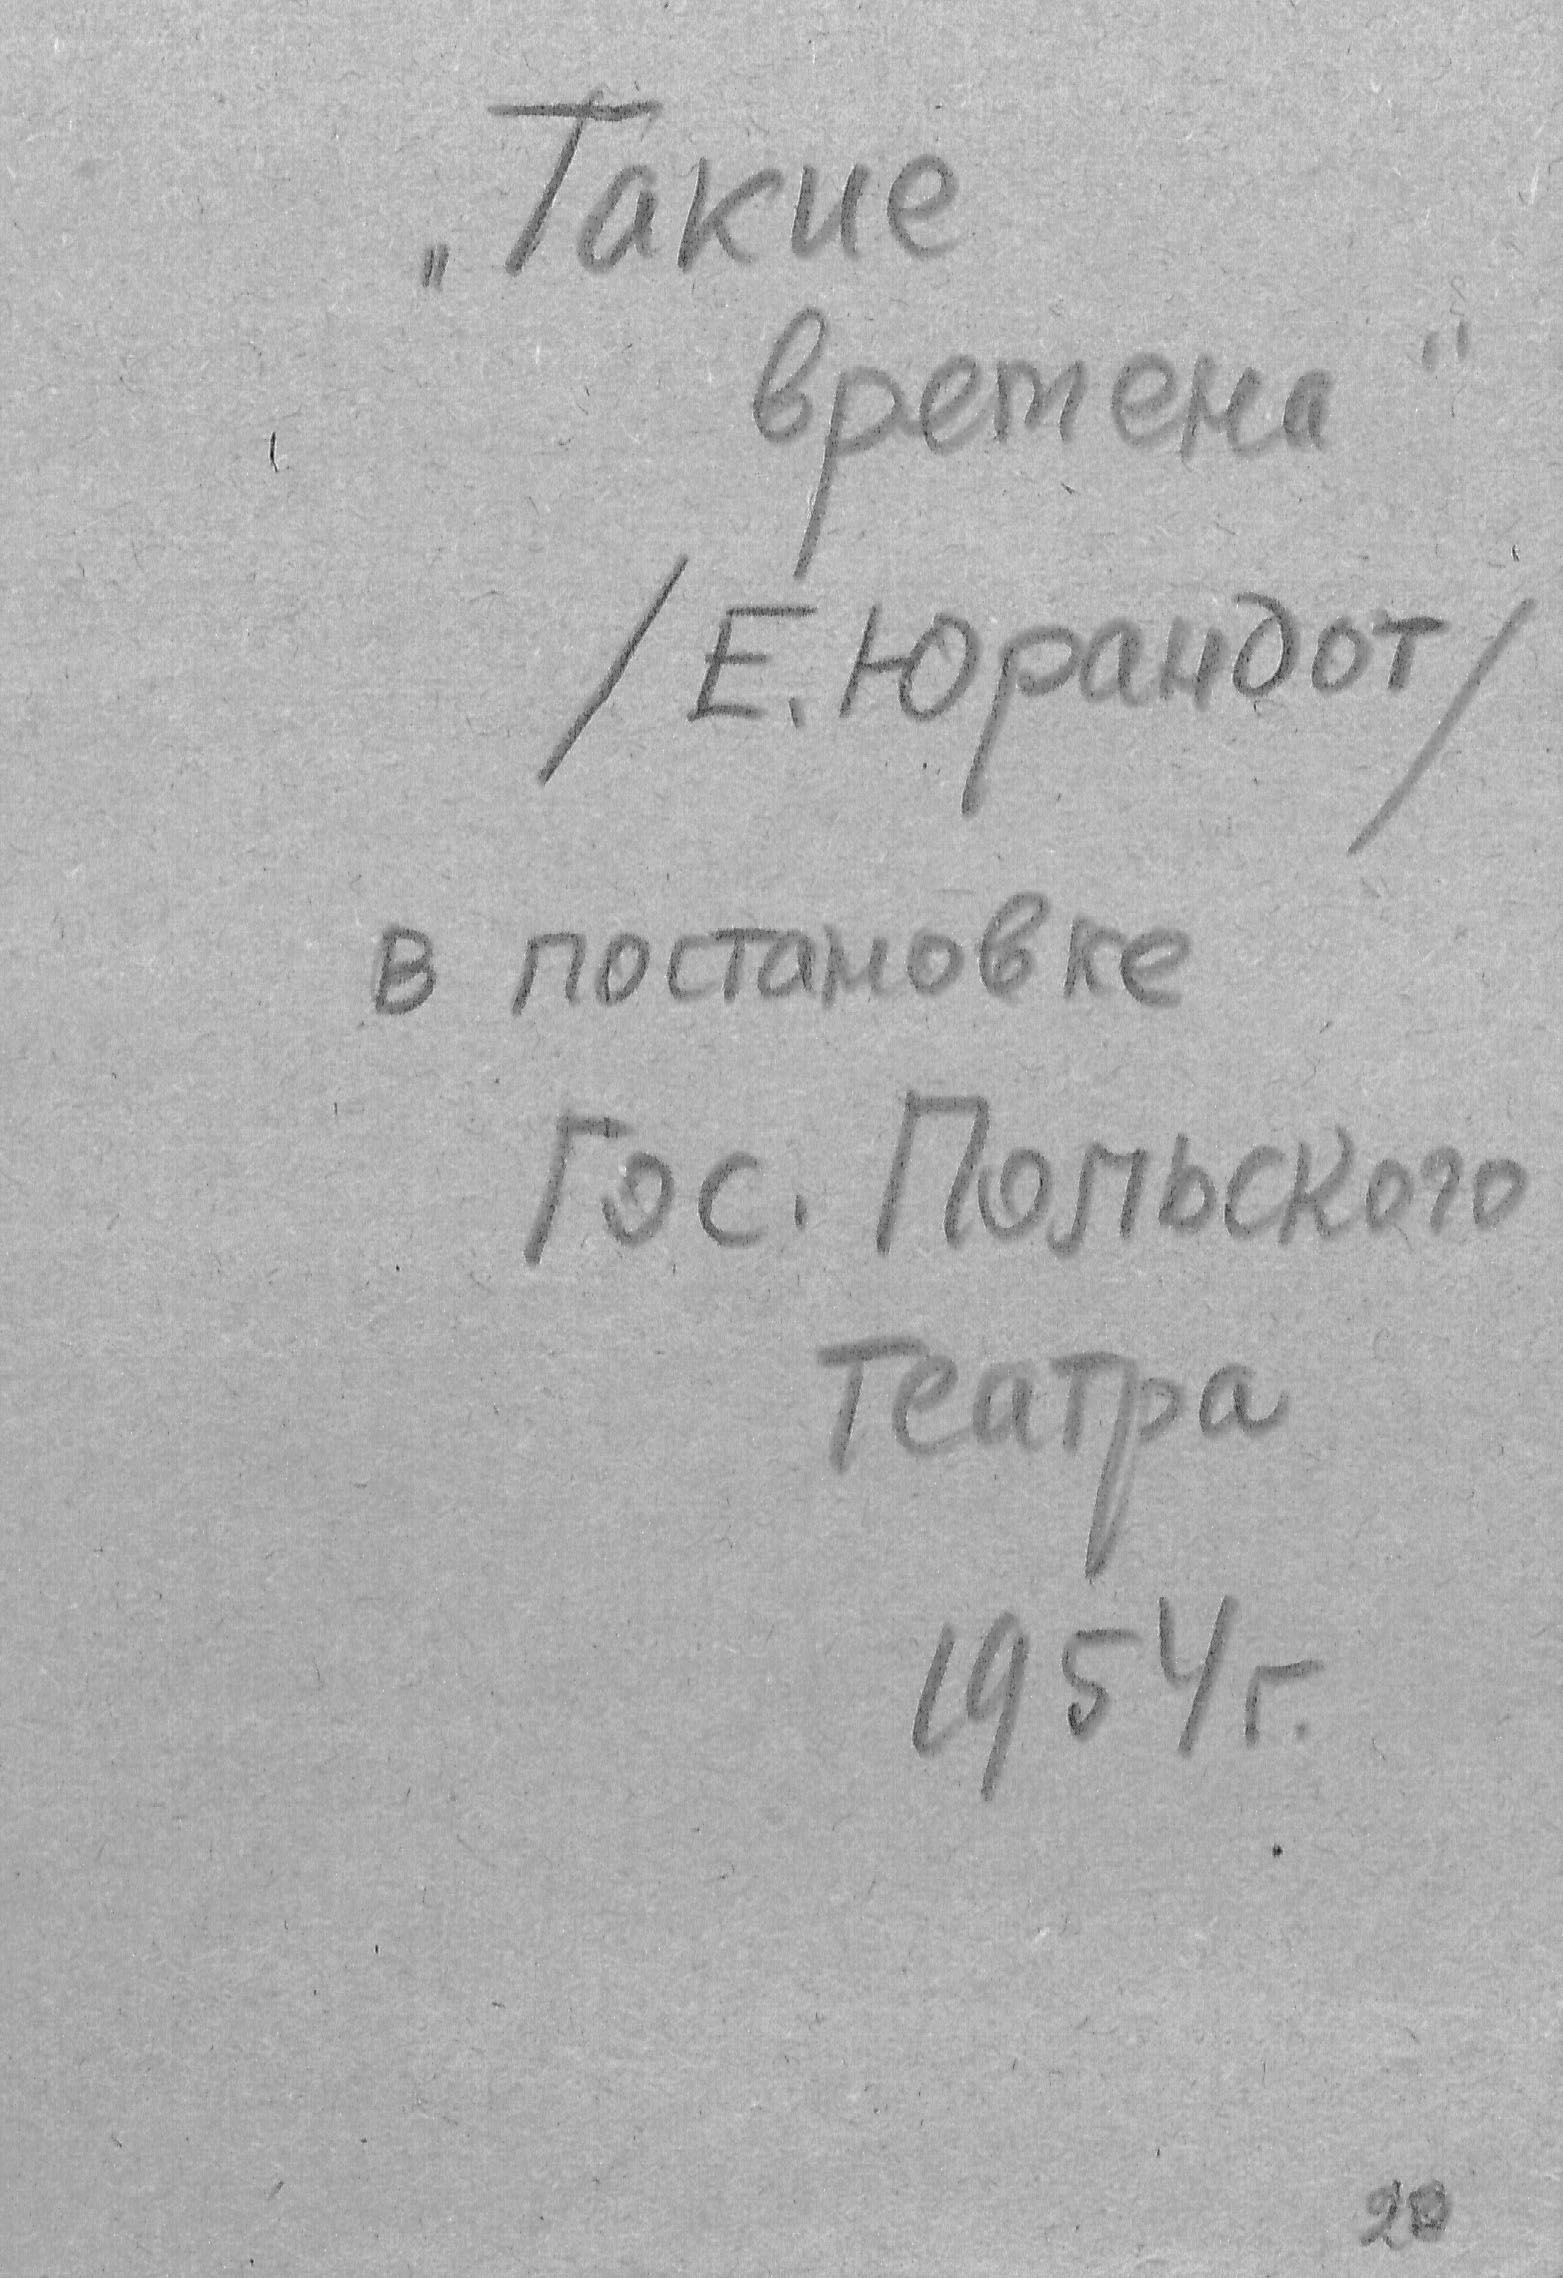 „Такие
времена"
/Е. Юрандот/
в постановке
Гос. Польского
театра
1954 г.